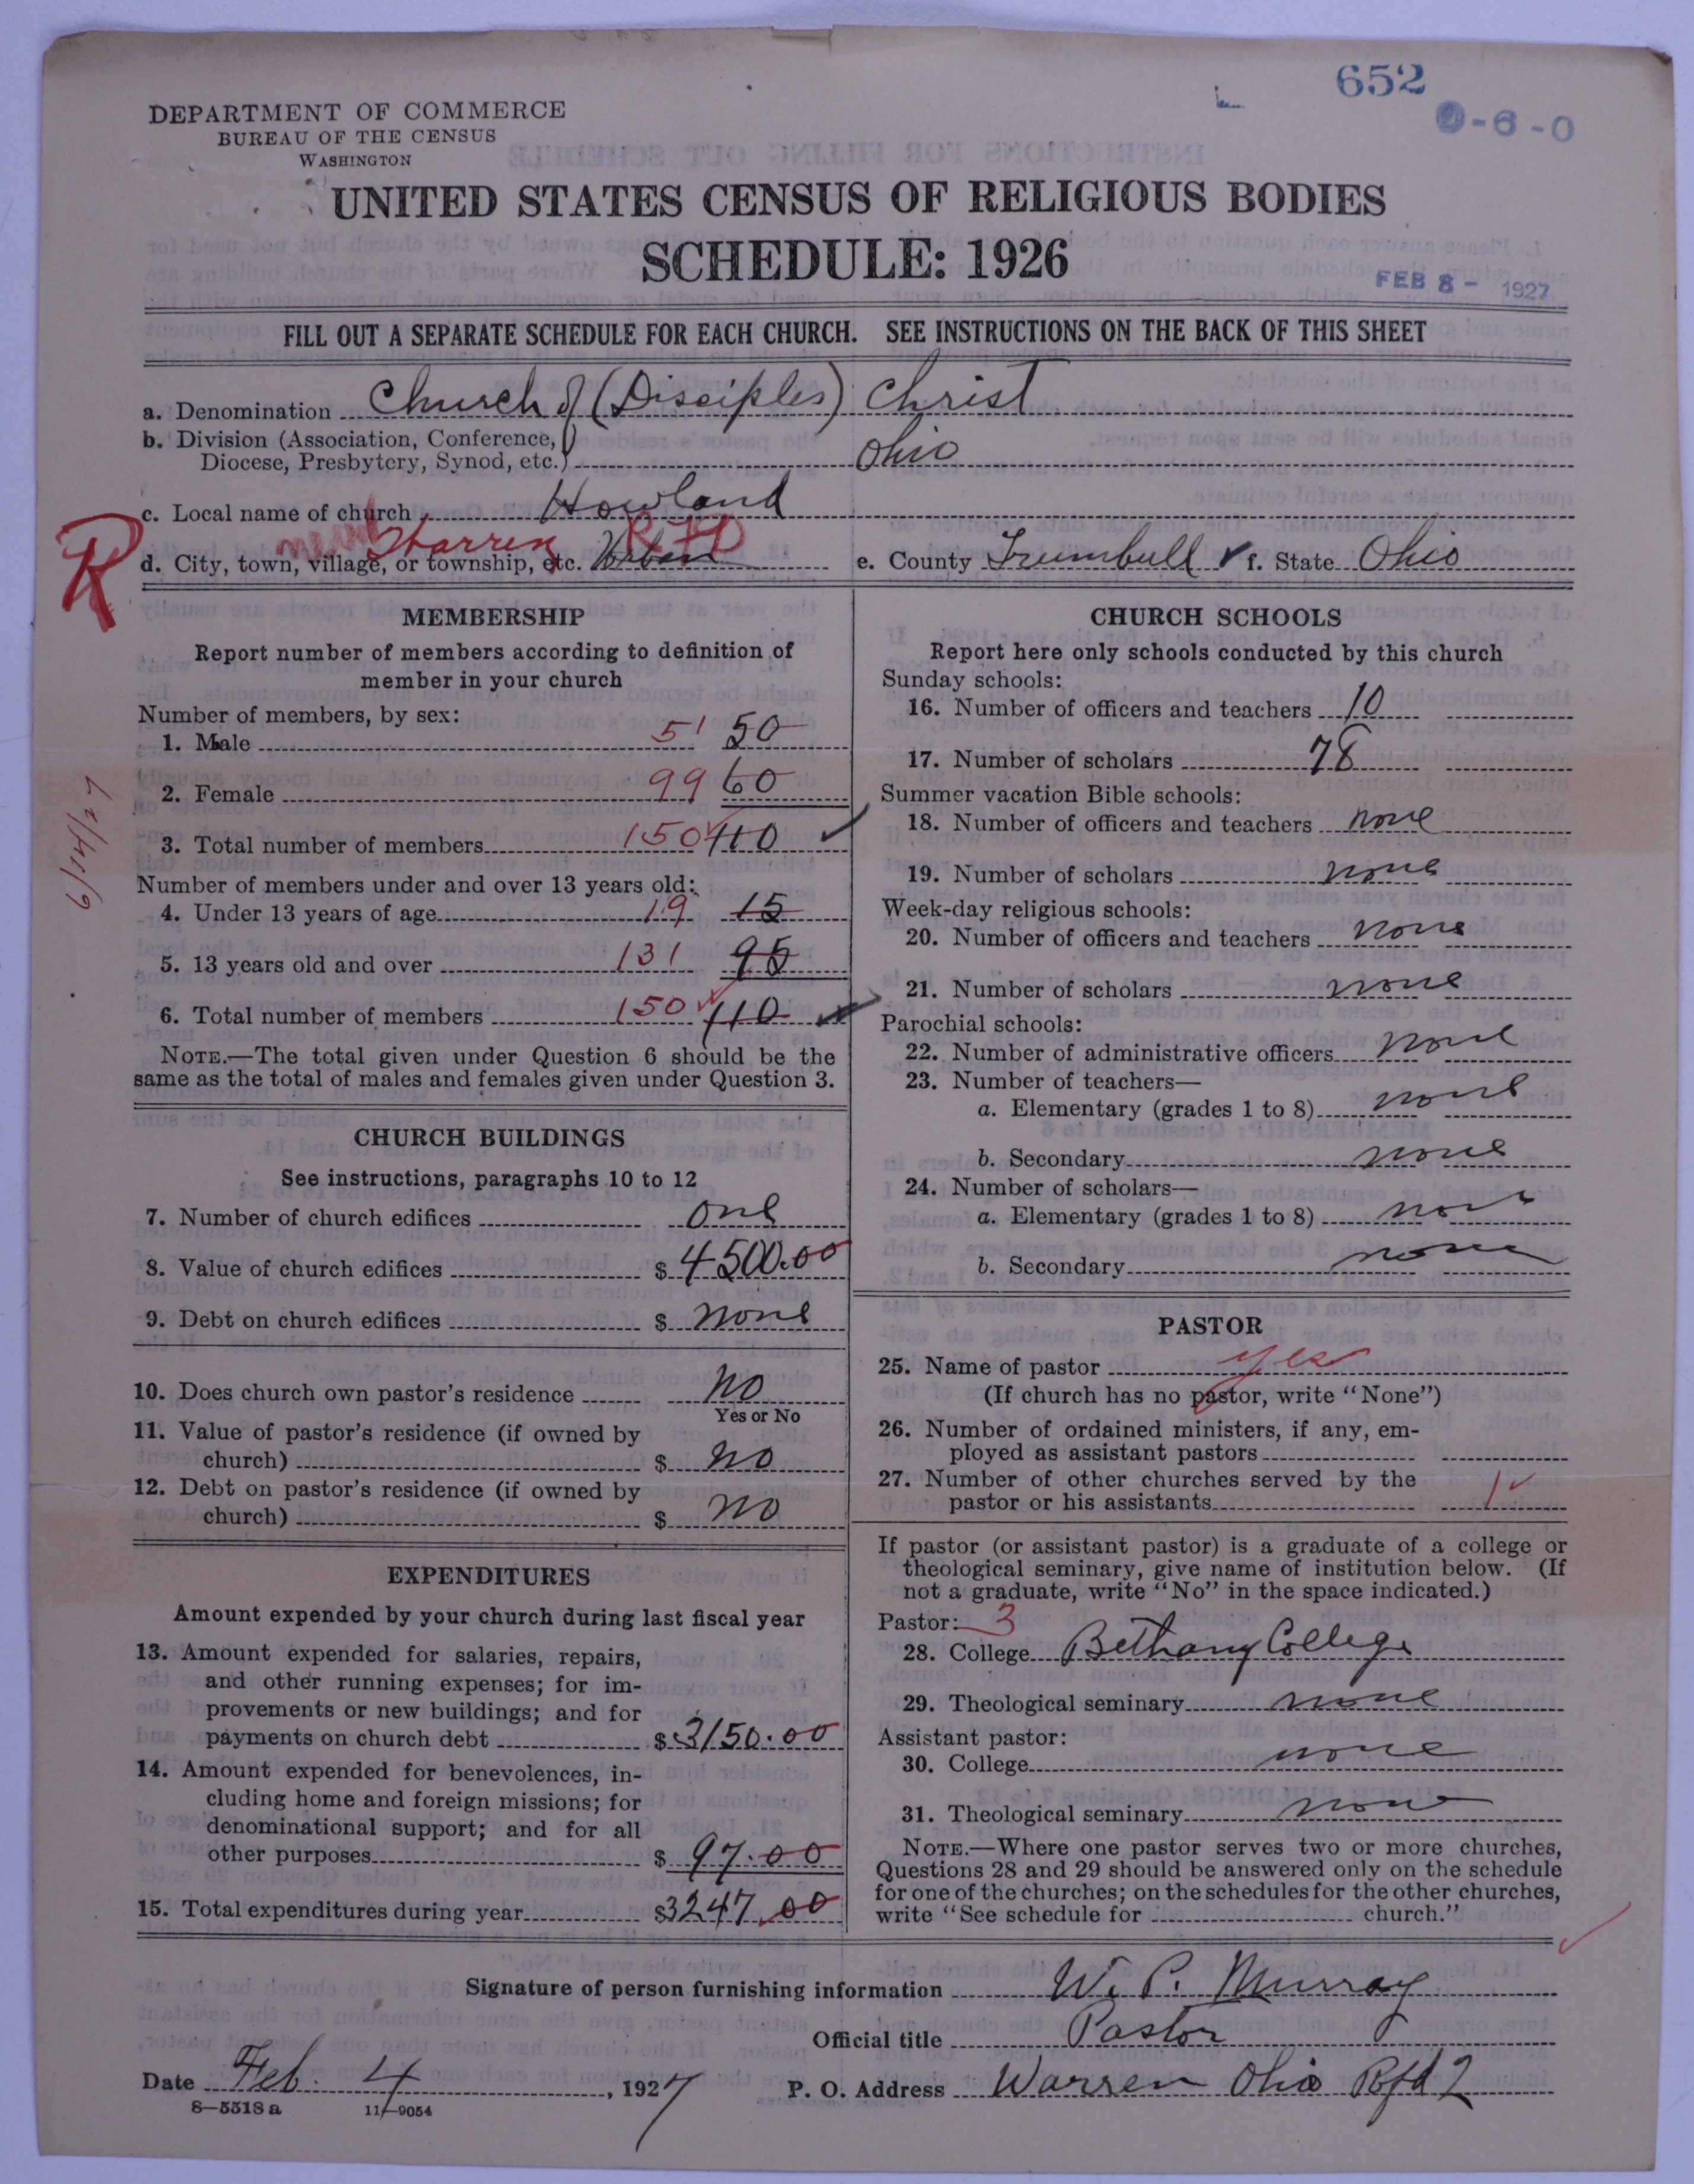 652
0-6-0
DEPARTMENT OF COMMERCE
BUREAU OF THE CENSUS
WASHINGTON
UNITED STATES CENSUS OF RELIGIOUS BODIES
SCHEDULE: 1926
FEB 8 - 1927
FILL OUT A SEPARATE SCHEDULE FOR EACH CHURCH. SEE INSTRUCTIONS ON THE BACK OF THIS SHEET
a. Denomination Church of (Disciples) Christ
b. Division (Association, Conference,
Diocese, Presbytery, Synod, etc.) Ohio
c. Local name of church Howland
R near Warren RFD
d. City, town, village, or township, etc. e. County Trumbull ✓ f. State Ohio
MEMBERSHIP
Report number of members according to definition of
member in your church
Number of members, by sex:
1. Male 51 50
2. Female 99 60
3. Total number of members 150 110 ✓
Number of members under and over 13 years old:
4. Under 13 years of age 19 15
5. 13 years old and over 131 95
6. Total number of members 150 110
NOTE.—The total given under Question 6 should be the
same as the total of males and females given under Question 3.
6/14/27
CHURCH BUILDINGS
See instructions, paragraphs 10 to 12
7. Number of church edifices one
8. Value of church edifices $ 4500.00
9. Debt on church edifices $ none
10. Does church own pastor's residence No
Yes or No
11. Value of pastor's residence (if owned by
church) $ No
12. Debt on pastor's residence (if owned by
church) $ No
EXPENDITURES
Amount expended by your church during last fiscal year
13. Amount expended for salaries, repairs,
and other running expenses; for im-
provements or new buildings; and for
payments on church debt $ 3150.00
14. Amount expended for benevolences, in-
cluding home and foreign missions; for
denominational support; and for all
other purposes $ 97.00
15. Total expenditures during year $3247.00
CHURCH SCHOOLS
Report here only schools conducted by this church
Sunday schools:
16. Number of officers and teachers 10
17. Number of scholars 78
Summer vacation Bible schools:
18. Number of officers and teachers none
19. Number of scholars none
Week-day religious schools:
20. Number of officers and teachers none
21. Number of scholars none
Parochial schools:
22. Number of administrative officers none
23. Number of teachers—
a. Elementary (grades 1 to 8) none
b. Secondary none
24. Number of scholars—
a. Elementary (grades 1 to 8) none
b. Secondary none
PASTOR
25. Name of pastor yes
(If church has no pastor, write "None")
26. Number of ordained ministers, if any, em-
ployed as assistant pastors
27. Number of other churches served by the
pastor or his assistants 1 ✓
If pastor (or assistant pastor) is a graduate of a college or
theological seminary, give name of institution below. (If
not a graduate, write "No" in the space indicated.)
Pastor: 3
28. College Bethany College
29. Theological seminary none
Assistant pastor:
30. College none
31. Theological seminary none
NOTE.—Where one pastor serves two or more churches,
Questions 28 and 29 should be answered only on the schedule
for one of the churches; on the schedules for the other churches,
write "See schedule for church."
Signature of person furnishing information W. P. Murray
Official title Pastor
Date Feb. 4, 1927 P. O. Address Warren Ohio Rfd 2
8—5518 a 11—9054